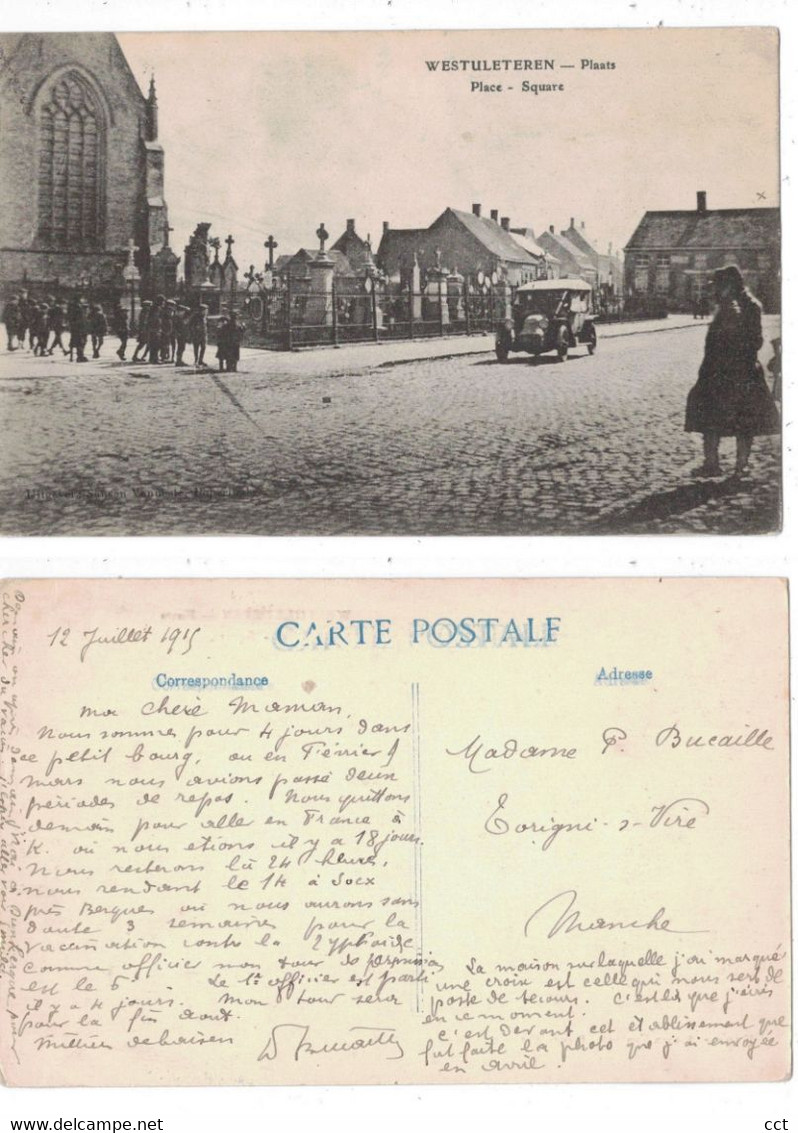 WESTULETEREN — Plaats
Place - Square
CARTE POSTALE
Correspondance
Adresse
12 Juillet 1915
Ma chère Maman,
Nous sommes pour 4 jours dans
ce petit bourg, où en Février &
Mars nous avions passé deux
périodes de repos. Nous quittons
demain pour aller en France à
K. où nous étions il y a 18 jours.
Nous resterons là 24 heures,
nous rendant le 14 à Socx
près Bergues où nous aurons sans
doute 3 semaines pour la
vaccination contre la Typhoïde
Comme officier mon tour de permission
est le 5e. Le 1er officier est parti
il y a 4 jours. Mon tour sera
pour la fin août.
Milliers de baisers
Madame P. Bucaille
Torigni-s-Vire
Manche
La maison sur laquelle j'ai marqué
une croix est celle qui nous sert de
poste de secours. C'est là que j'écris
en ce moment.
C'est devant cet établissement que
fut faite la photo que j'ai envoyée
en avril.
Demain ou après demain j'irai à Dunkerque pour
chercher du vaccin
cct